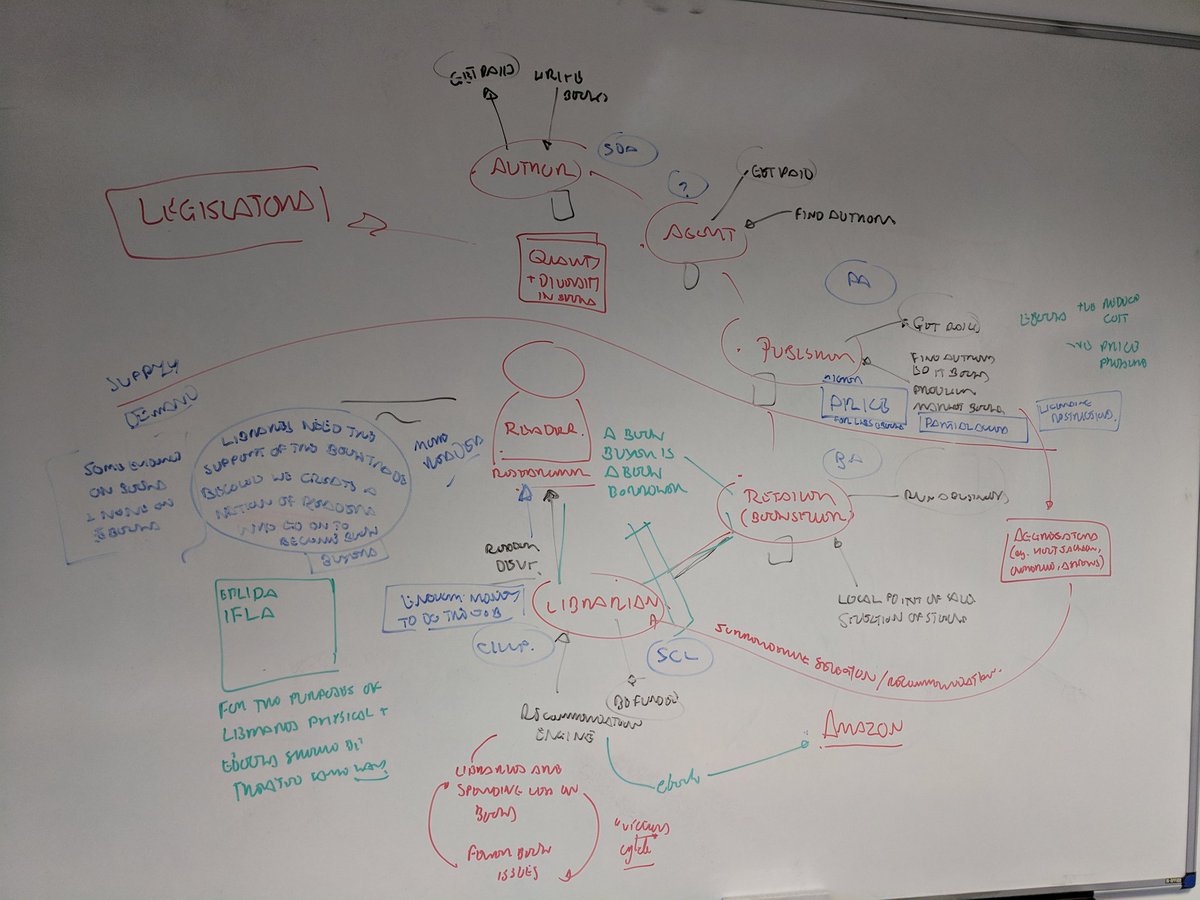 GET PAID
WRITE
BOOKS
AUTHOR
SOA
LEGISLATORS
?
GET PAID
FIND AUTHORS
AGENT
QUALITY
+ DIVERSITY
IN BOOKS
PA
GET PAID
PUBLISHER
FIND AUTHORS
DO IT BOOKS
PRODUCE
MARKET BOOKS
EBOOKS
REDUCE
COST
PRICE
PRESSURE
HIGHER
PRICE
FOR LIBS EBOOKS
LICENSING
RESTRICTIONS
SUPPLY
DEMAND
LIBRARIES NEED THE
SUPPORT OF THE BOOK TRADE
BECAUSE WE CREATE A
NATION OF READERS
WHO GO ON TO
BECOME BOOK
BUYERS
MORE
READERS
SOME EVIDENCE
ON BOOKS
NONE ON
EBOOKS
READER
A BOOK
BUYER IS
A BOOK
BORROWER
BA
RETAILER
(BOOKSELLER)
RUN BUSINESS
LOCAL POINT OF SALE
SELECTION OF STOCK
AGGREGATORS
(eg.
READER
DEVT.
ENOUGH MONEY
TO DO THE JOB
LIBRARIAN
CILIP
SCL
BE FUNDED
RECOMMENDATION
ENGINE
SELECTION/RECOMMENDATION
AMAZON
ebooks
EBLIDA
IFLA
FOR THE PURPOSES OF
LIBRARIES PHYSICAL +
EBOOKS SHOULD BE
TREATED SAME WAY
LIBRARIES ARE
SPENDING LESS ON
BOOKS
FEWER BOOK
ISSUES
"vicious
cycle"